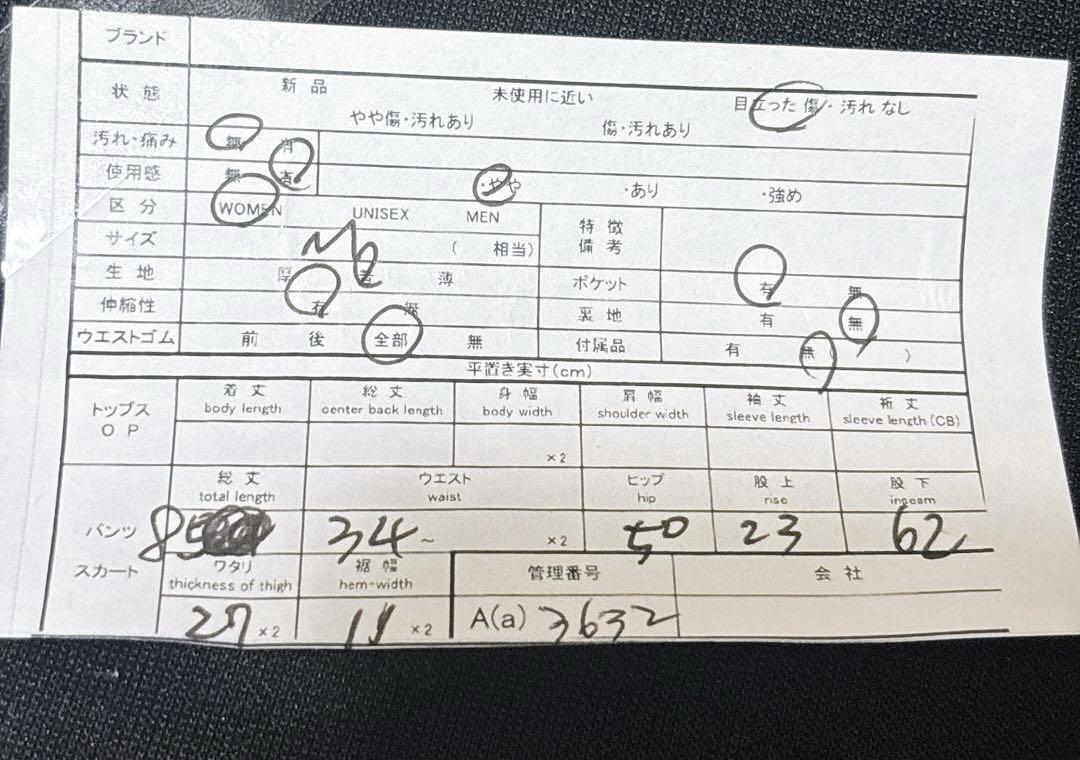 ブランド
状態 新品 未使用に近い 目立った傷・汚れなし
やや傷・汚れあり 傷・汚れあり
汚れ・痛み 無 有
使用感 無 有 ・やや ・あり ・強め
区分 WOMEN UNISEX MEN 特徴備考
サイズ M ( 相当)
生地 厚 普 薄 ポケット 有 無
伸縮性 有 無 裏地 有 無
ウエストゴム 前 後 全部 無 付属品 有 無( )
平置き実寸(cm)
トップス OP 着丈 総丈 身幅 肩幅 袖丈 裄丈
body length center back length body width shoulder width sleeve length sleeve length(CB)
×2
総丈 ウエスト ヒップ 股上 股下
total length waist hip rise inseam
パンツ 85 34~ ×2 50 23 62
スカート ワタリ 裾幅 管理番号 会社
thickness of thigh hem-width
27 ×2 11 ×2 A(a) 3632